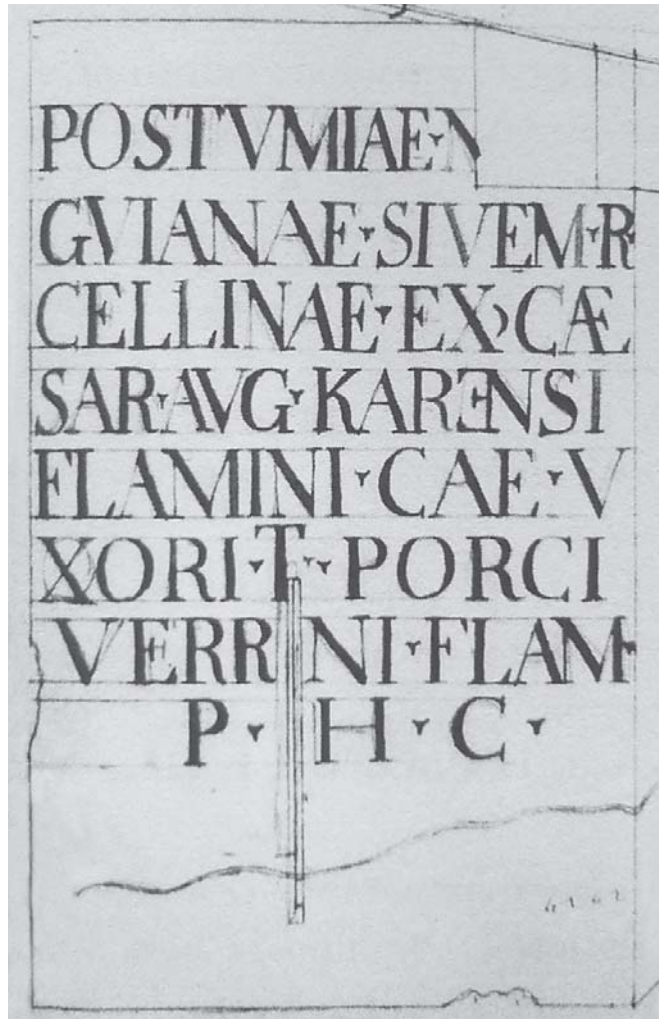 POSTVMIAE·N
GVIANAE·SIVEM·R
CELLINAE·EX)CÆ
SAR·AVG·KARENSI
FLAMINI·CAE·V
XORI·T·PORCI
VERR NI·FLAM·
P·H·C·